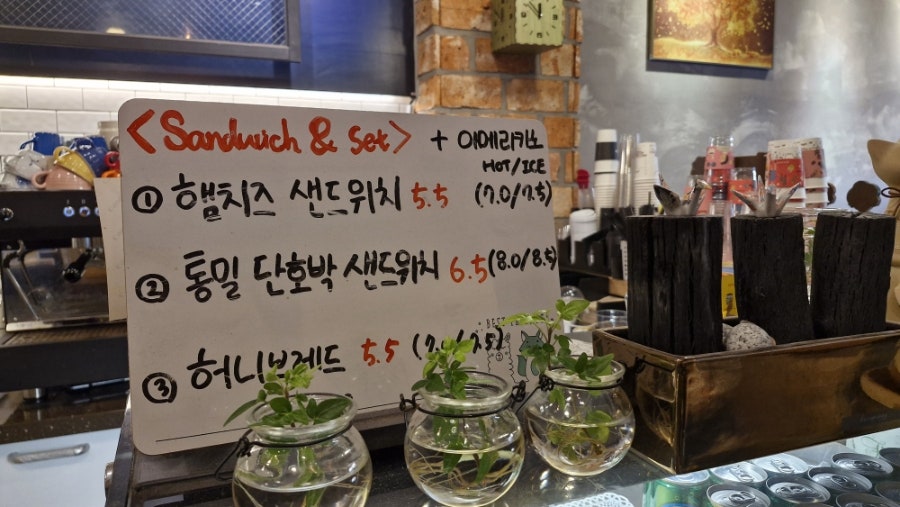 <Sandwich & Set> + 아메리카노
HOT/ICE
① 햄치즈 샌드위치 5.5 (7.0/7.5)
② 통밀 단호박 샌드위치 6.5 (8.0/8.5)
③ 허니브레드 5.5 (7.0/7.5)
BEST